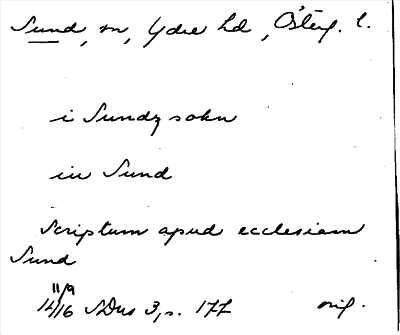 Sund, sn, Ydre hd, Österg. l.
i Sundz sokn
in Sund
Scriptum apud ecclesiam
Sund
11/9
1416 SDns 3, s. 177 orig.